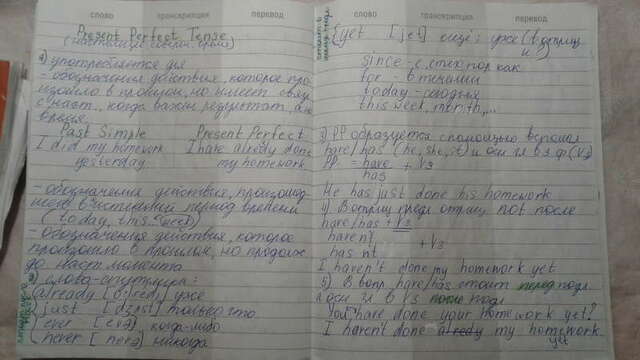 слово транскрипция перевод
Present Perfect Tense
(настоящее соверш. время)
1) употребляется для
- обозначения действия, которое про
изошло в прошлом, но имеет связь
с наст., когда важен результат, а не
время.
Past Simple Present Perfect
I did my homework I have already done
yesterday my homework
- обозначения действия, происшед
шего в истекший период времени
(today, this week)
- обозначения действия, которое
произошло в прошлом, но продолж
до наст. момента
2) слова-спутники:
already уже
just только что
ever когда-либо
never никогда
слово транскрипция перевод
yet [jet] ещё; уже (в отриц
и ?)
since - с, с тех пор как
for - в течении
today - сегодня
this week, month, ...
3) PP образуется с помощью вспом
have/has (he, she, it) и осн гл в 3 ф (V3)
PP = have + V3
has
He has just done his homework
4) В отриц предл отриц not после
have/has + V3
haven't
hasn't + V3
I haven't done my homework yet
5) В вопр. have/has стоит перед подл
а осн гл в V3 после подл
You have done your homework yet?
I haven't done alredy my homework
yet